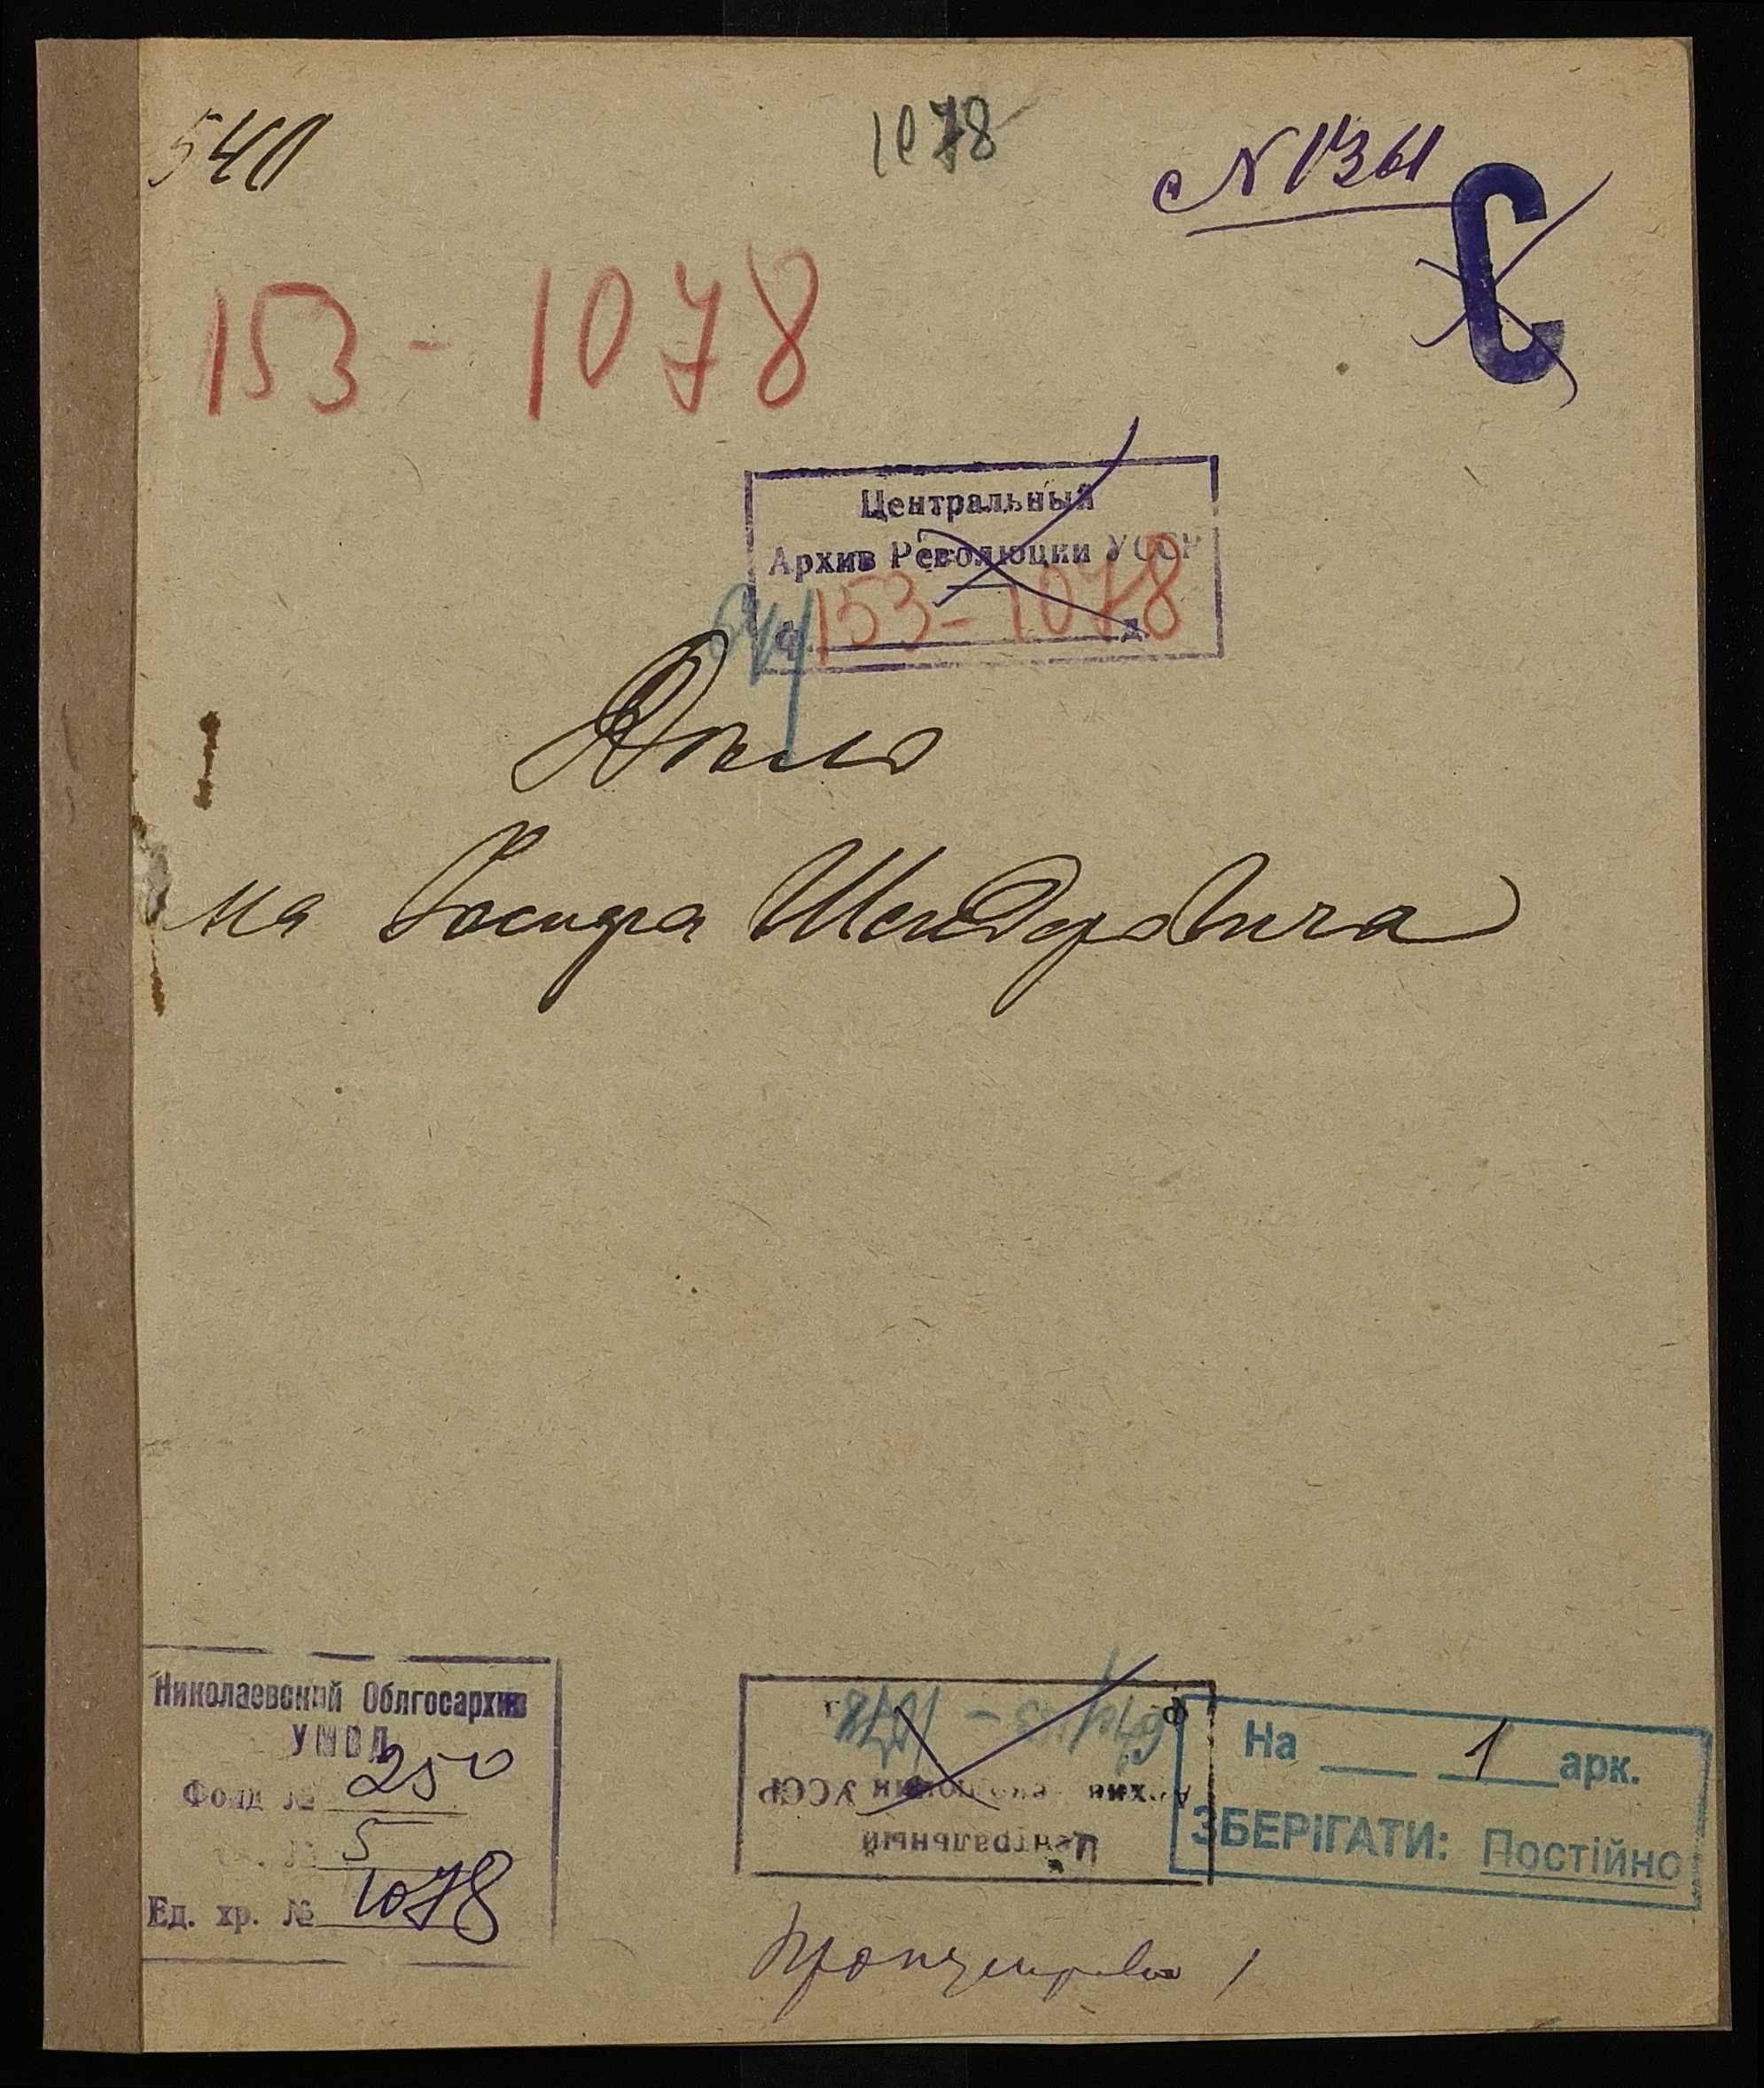 540
1078
№ 1361
С
153 - 1078
Центральный
Архив Революции УССР
ф. 153 - 1078 д.
Дѣло
на Іосифа Шендеровича
Николаевский Облгосархив
УМВД
Фонд № 250
№ 5
Ед. хр. № 1078
Центральный
Архив Революции УССР
ф. 1078
На 1 арк.
ЗБЕРІГАТИ: Постійно
1